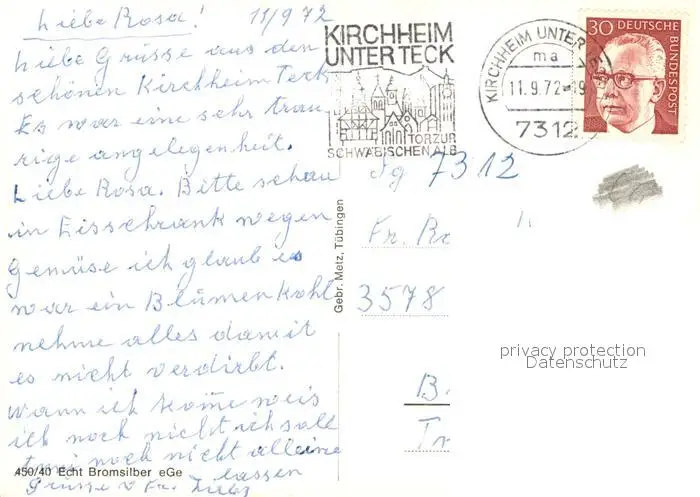 Liebe Rosa! 11/9 72
Liebe Grüsse aus den
schönen Kirchheim Teck
Es war eine sehr trau
rige angelegenheit.
Liebe Rosa. Bitte schau
in Eisschrank wegen
Gemüse ich glaub es
war ein Blümenkohl
nehme alles damit
es nicht verdirbt.
Wann ich kome weis
ich noch nicht ich soll
noch nicht alleine
lassen
Grüsse v. Fr.
450/40 Echt Bromsilber eGe
Gebr. Metz, Tübingen
KIRCHHEIM
UNTER TECK
TOR ZUR
SCHWÄBISCHEN ALB
KIRCHHEIM UNTER
ma
11.9.72
7312
30 DEUTSCHE BUNDESPOST
7312
Fr. Ro
3578
B.
privacy protection
Datenschutz